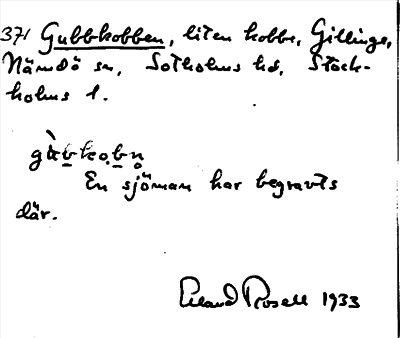 371 Gubbkobben, liten kobbe, Gillinge,
Nämdö sn, Sotholms hd, Stock-
holms l.
gàbkobn̥
En sjöman har begravts
där.
Erland Rosell 1933